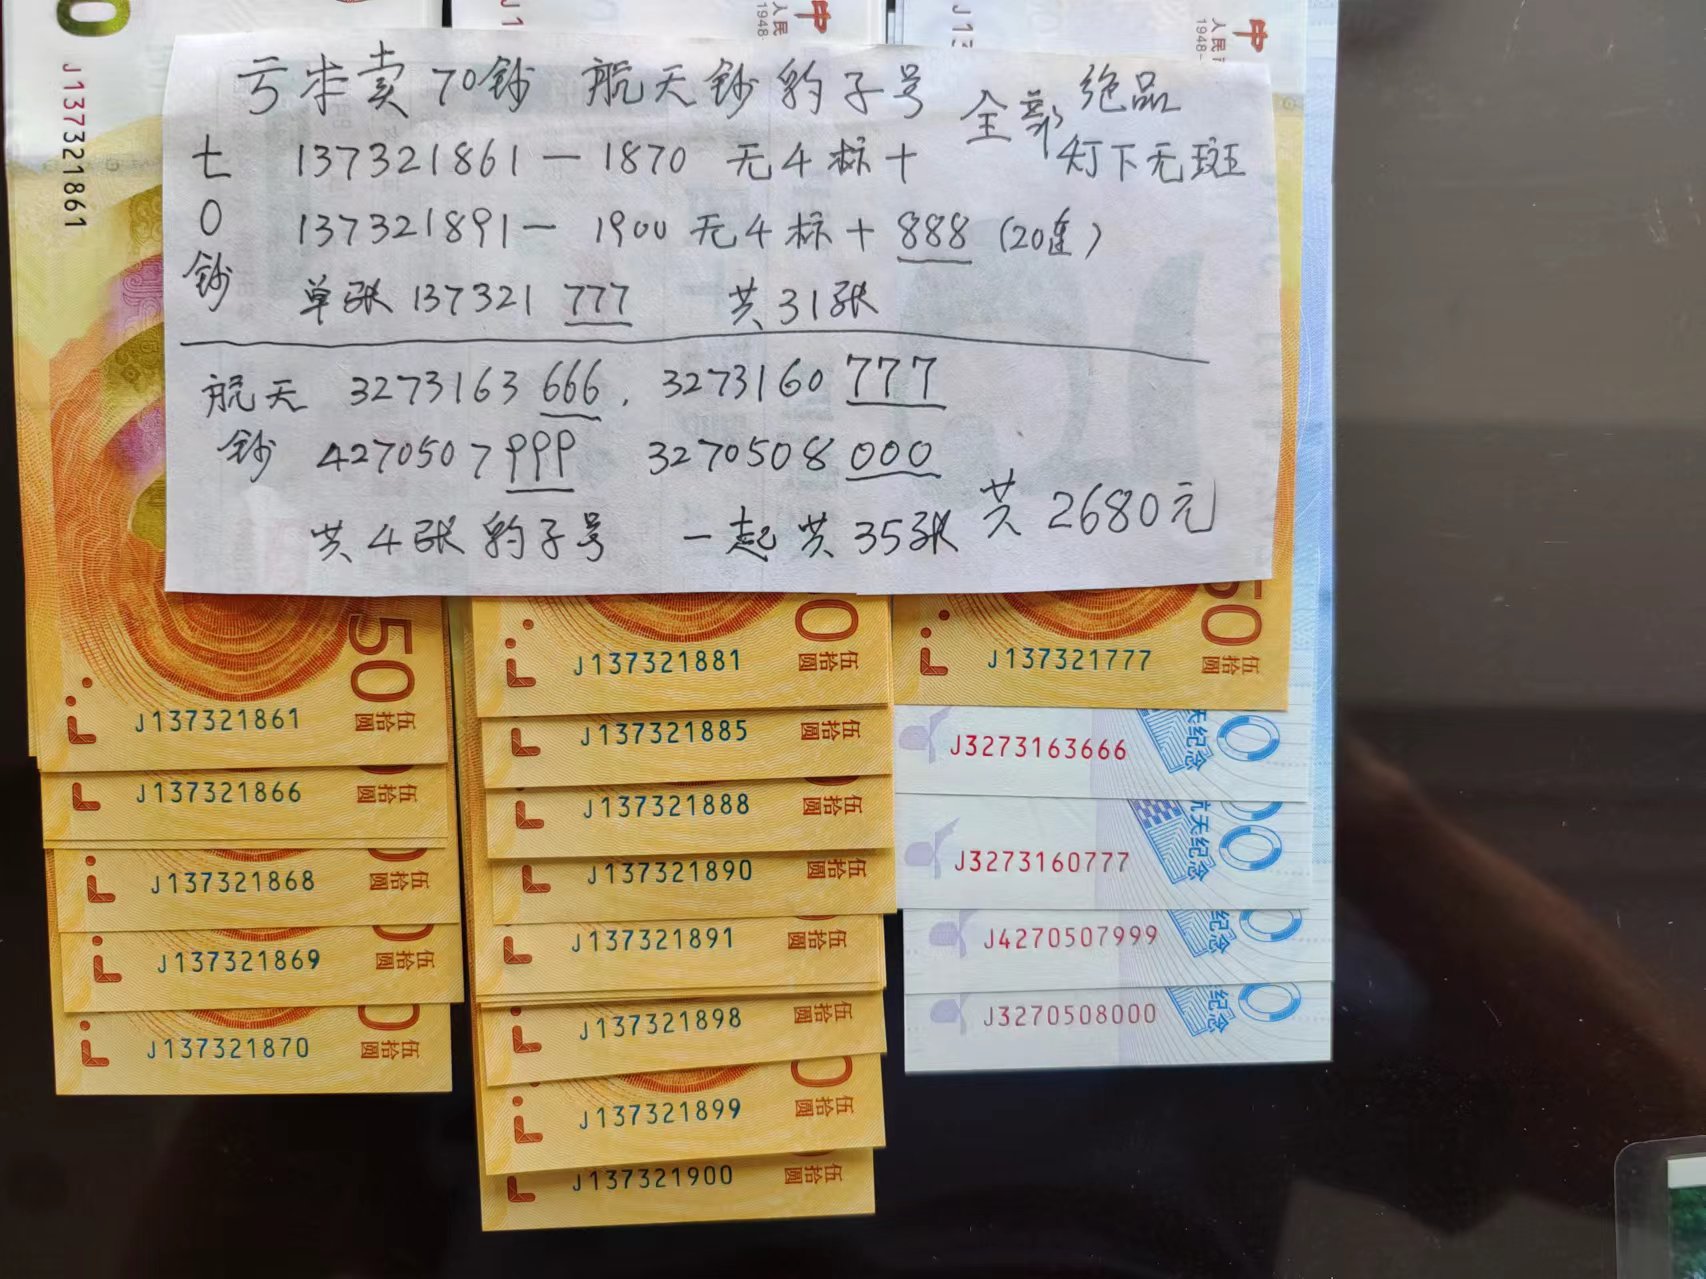 亏本卖70钞 航天钞豹子号 全部绝品
灯下无斑
七0钞 137321861—1870 无4标十
137321891— 1900 无4标十888 (20连)
单张137321777 共31张
航天钞 3273163666. 3273160777
4270507999 3270508000
共4张豹子号 一起共35张 共2680元
J137321861
50
伍拾圆
J137321861
伍拾圆
J137321866
伍拾圆
J137321868
伍拾圆
J137321869
伍拾圆
J137321870
伍拾圆
中
人民
1948-
J137321881
伍拾圆
J137321885
伍拾圆
J137321888
伍拾圆
J137321890
伍拾圆
J137321891
伍拾圆
J137321898
伍拾圆
J137321899
伍拾圆
J137321900
伍拾圆
中
人民
1948-
50
J137321777
伍拾圆
J3273163666
天纪念
J3273160777
航天纪念
J4270507999
纪念
J3270508000
纪念